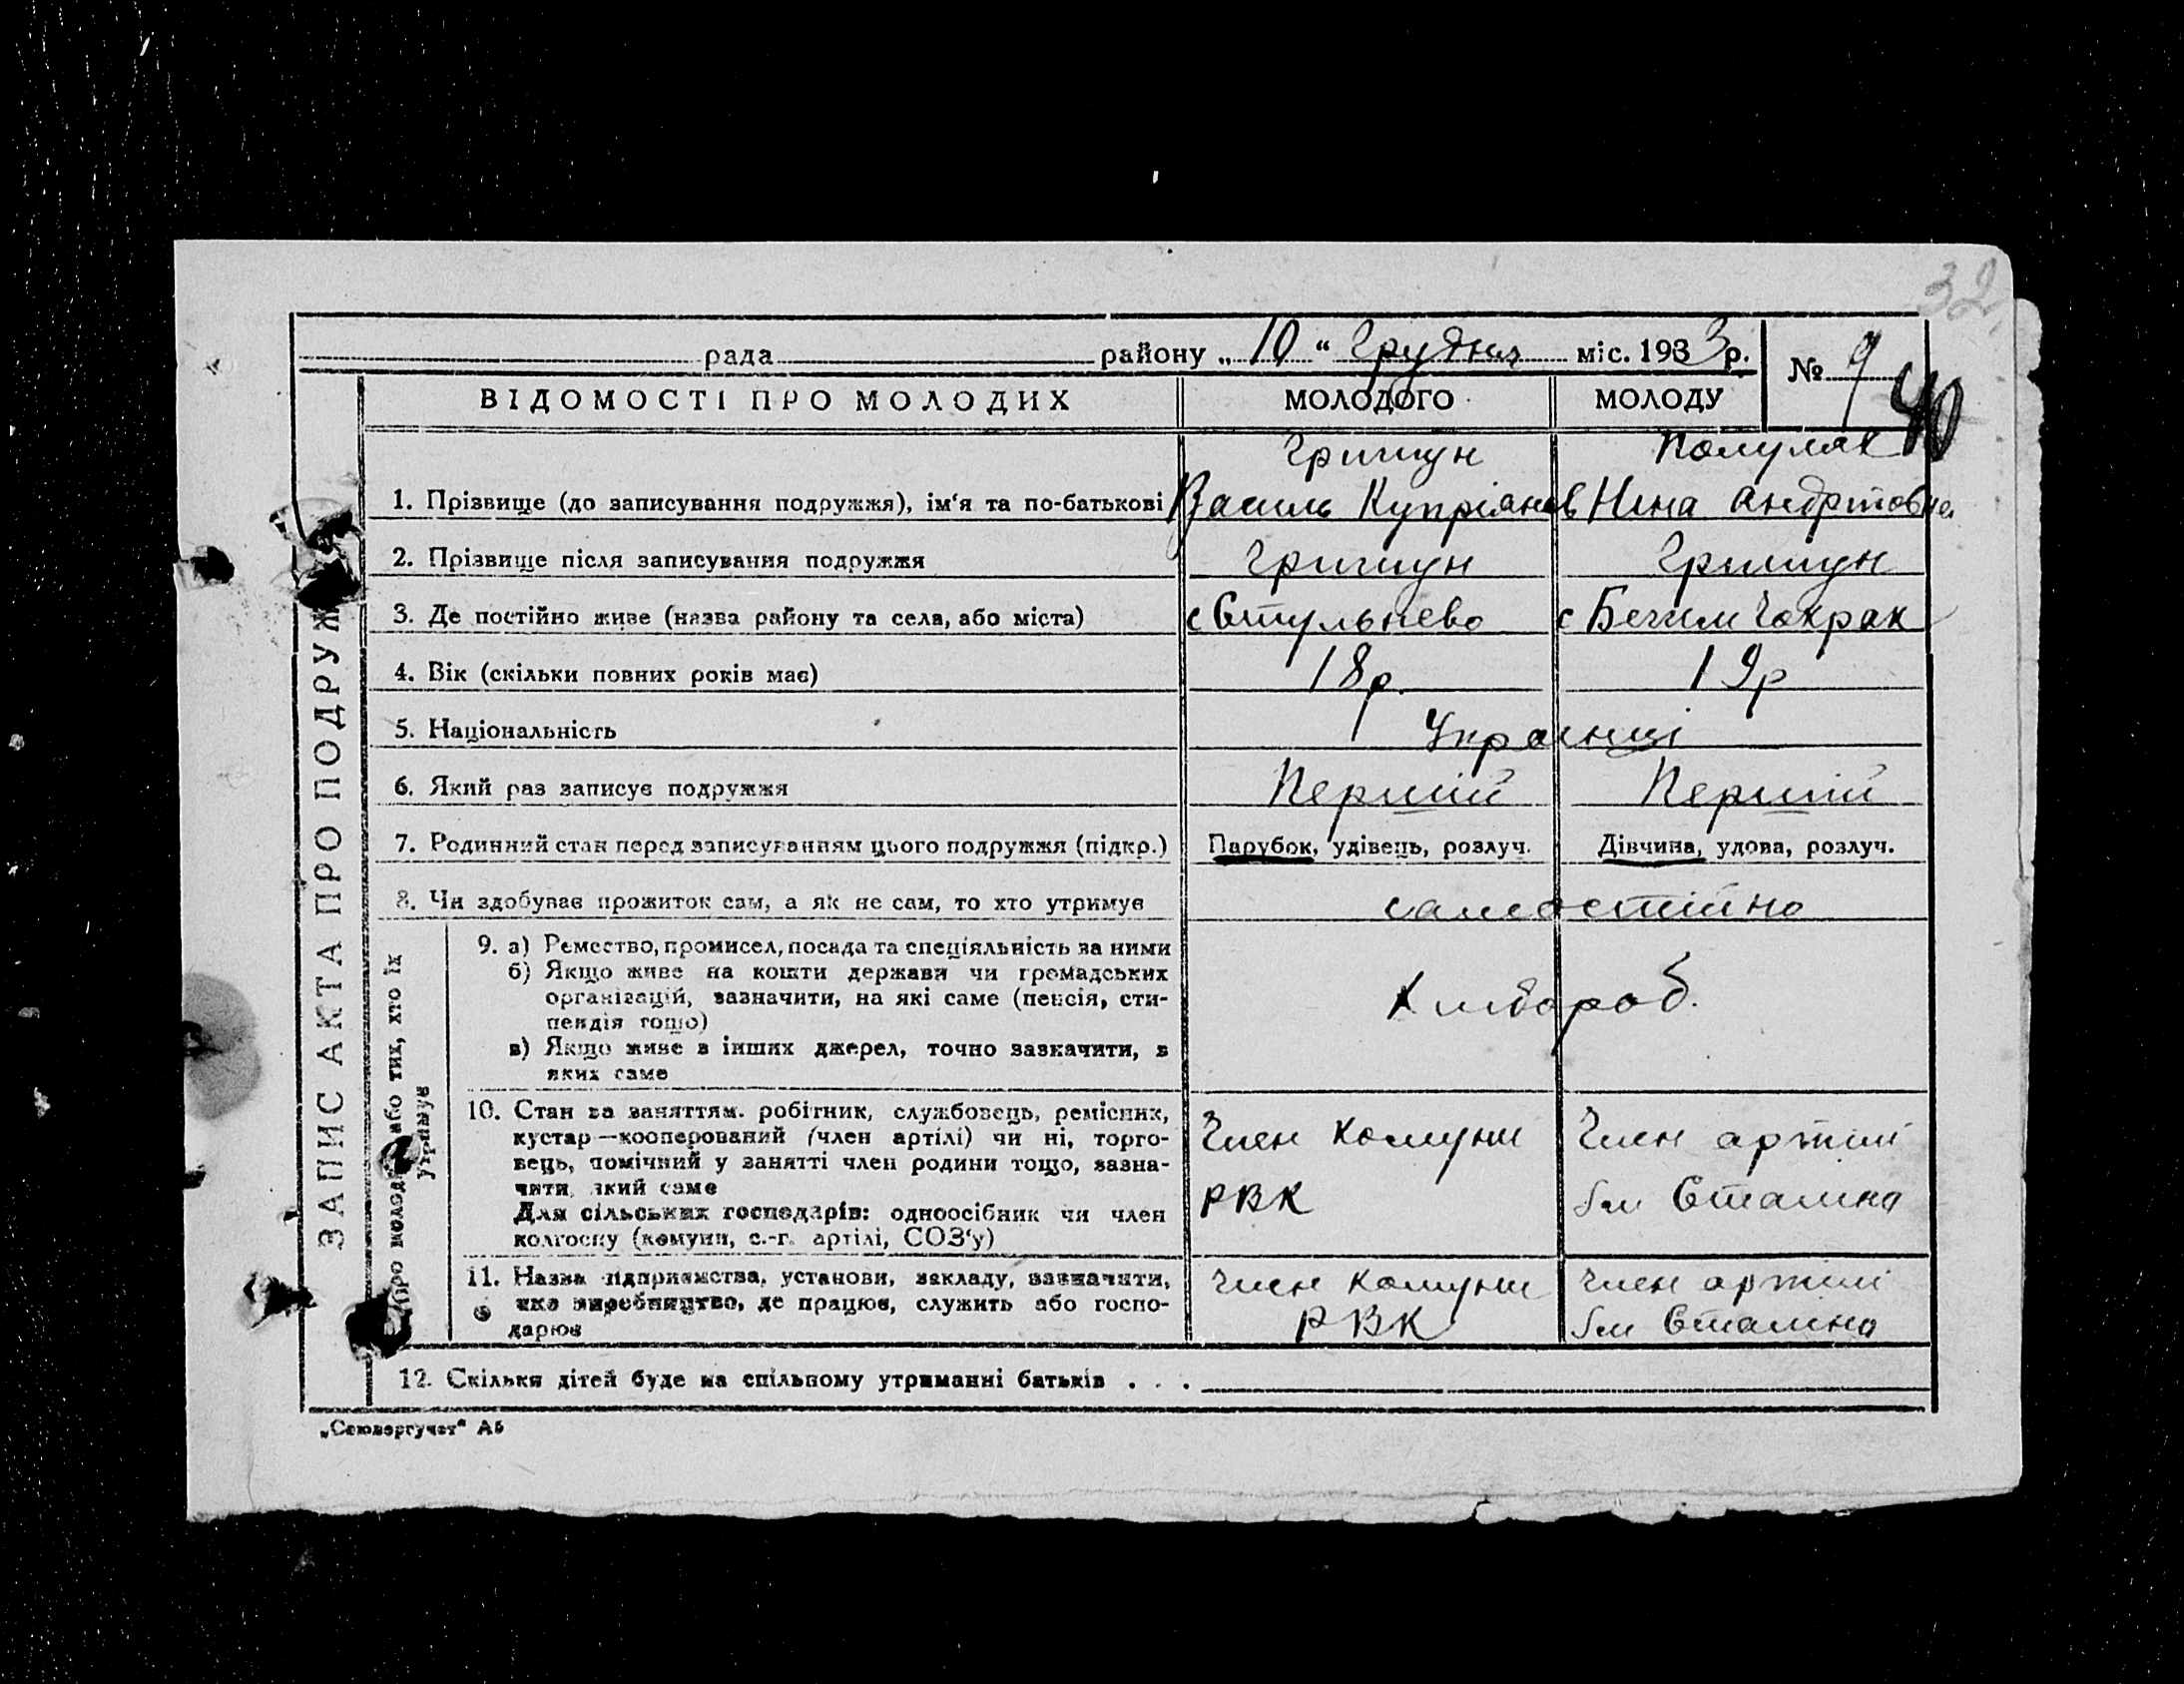 32.
рада района „ 10 “ Грудня міс. 1933 р. № 9
40
ВІДОМОСТІ ПРО МОЛОДИХ МОЛОДОГО МОЛОДУ
Гришун Полуляк
1. Прізвище (до записування подружжя), ім‘я та по-батькові Василь Купріянов Нина Андріговна
2. Прізвище після записування подружжя Гришун Гришун
3. Де постійно живе (назва району та села, або міста) с Стульнево с Бегим Чокрак
4. Вік (скільки повних років має) 18р. 19р
5. Національність Українці
6. Який раз записує подружжя Перший Перший
7. Родинний стан перед записуванням цього подружжя (підкр.) Парубок, удівець, розлуч. Дівчина, удова, розлуч.
8. Чи здобуває прожиток сам, а як не сам, то хто утримує самостійно
9. а) Ремество, промисел, посада та спеціяльність за ними
б) Якщо живе на кошти держави чи громадських
організацій, зазначити, на які саме (пенсія, сти-
пендія тощо)
в) Якщо живе з інших джерел, точно зазначити, з
яких саме
Хлібороб.
10. Стан за заняттям. робітник, службовець, ремісник,
кустар—кооперований (член артілі) чи ні, торго-
вець, помічний у занятті член родини тощо, зазна-
чити який саме
Для сільських господарів: одноосібник чи член
колгоспу (комуни, с.-г. артілі, СОЗ‘у)
Член комуни
РВК
Член артілі
Ім Сталіна
11. Назва підприємства, установи, закладу, зазначити,
яке виробництво, де працює, служить або госпо-
дарює
Член комуни
РВК
Член артілі
Ім Сталіна
12. Скільки дітей буде на спільному утриманні батьків . . .
„Союзоргучет“ А5
ЗАПИС АКТА ПРО ПОДРУЖ
про молод або тих, хто їх
утримує